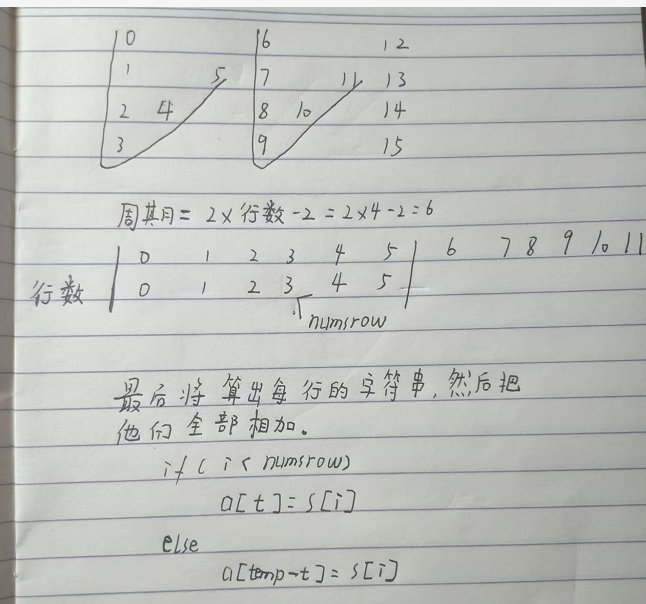 0 6 12
1 5 7 11 13
2 4 8 10 14
3 9 15
周期 = 2×行数-2 = 2×4-2 = 6
0 1 2 3 4 5 6 7 8 9 10 11
行数 0 1 2 3 4 5
numsrow
最后将算出每行的字符串,然后把
他们全部相加。
if ( i < numsrow)
a[t] = s[i]
else
a[temp-t] = s[i]